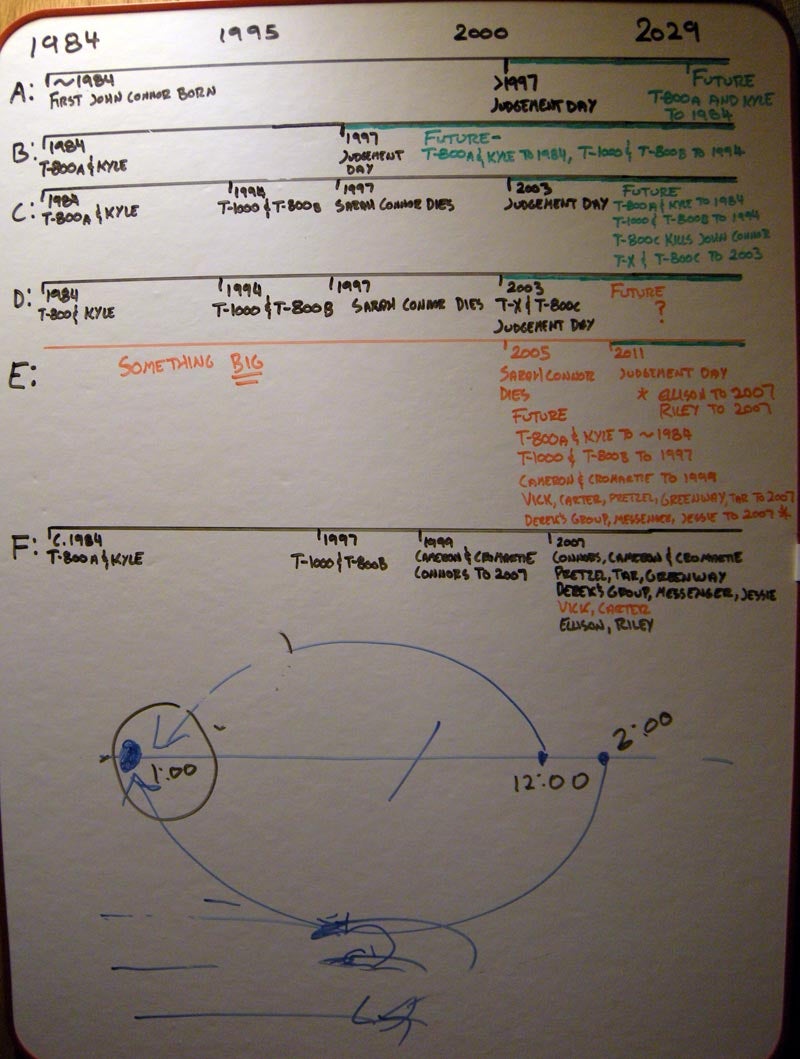 1984 1995 2000 2029
A: ~1984 >1997 FUTURE
FIRST JOHN CONNOR BORN JUDGEMENT DAY T-800A AND KYLE
TO 1984
B: 1984 1997 FUTURE-
T-800A & KYLE JUDGEMENT T-800A & KYLE TO 1984, T-1000 & T-800B TO 1994
DAY
C: 1984 1994 1997 2003 FUTURE
T-800A & KYLE T-1000 & T-800B SARAH CONNOR DIES JUDGEMENT DAY T-800A & KYLE TO 1984
T-1000 & T-800B TO 1994
T-800C KILLS JOHN CONNOR
T-X & T-800C TO 2003
D: 1984 1994 1997 2003 FUTURE
T-800 & KYLE T-1000 & T-800B SARAH CONNOR DIES T-X & T-800C ?
JUDGEMENT DAY
E: SOMETHING BIG 2005 2011
SARAH CONNOR JUDGEMENT DAY
DIES * ELLISON TO 2007
RILEY TO 2007
FUTURE
T-800A & KYLE TO ~1984
T-1000 & T-800B TO 1997
CAMERON & CROMARTIE TO 1999
VICK, CARTER, PRETZEL, GREENWAY, TAR TO 2007
DEREK'S GROUP, MESSENGER, JESSIE TO 2007 *
F: C.1984 1997 1999 2007
T-800A & KYLE T-1000 & T-800B CAMERON & CROMARTIE CONNORS, CAMERON & CROMARTIE
CONNORS TO 2007 PRETZEL, TAR, GREENWAY
DEREK'S GROUP, MESSENGER, JESSIE
VICK, CARTER
ELLISON, RILEY
2:00
1:00 12:00